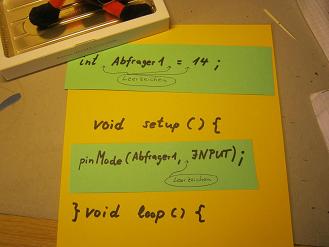 int Abfrager1 = 14;
Leerzeichen
void setup() {
pinMode(Abfrager1, INPUT);
Leerzeichen
} void loop() {